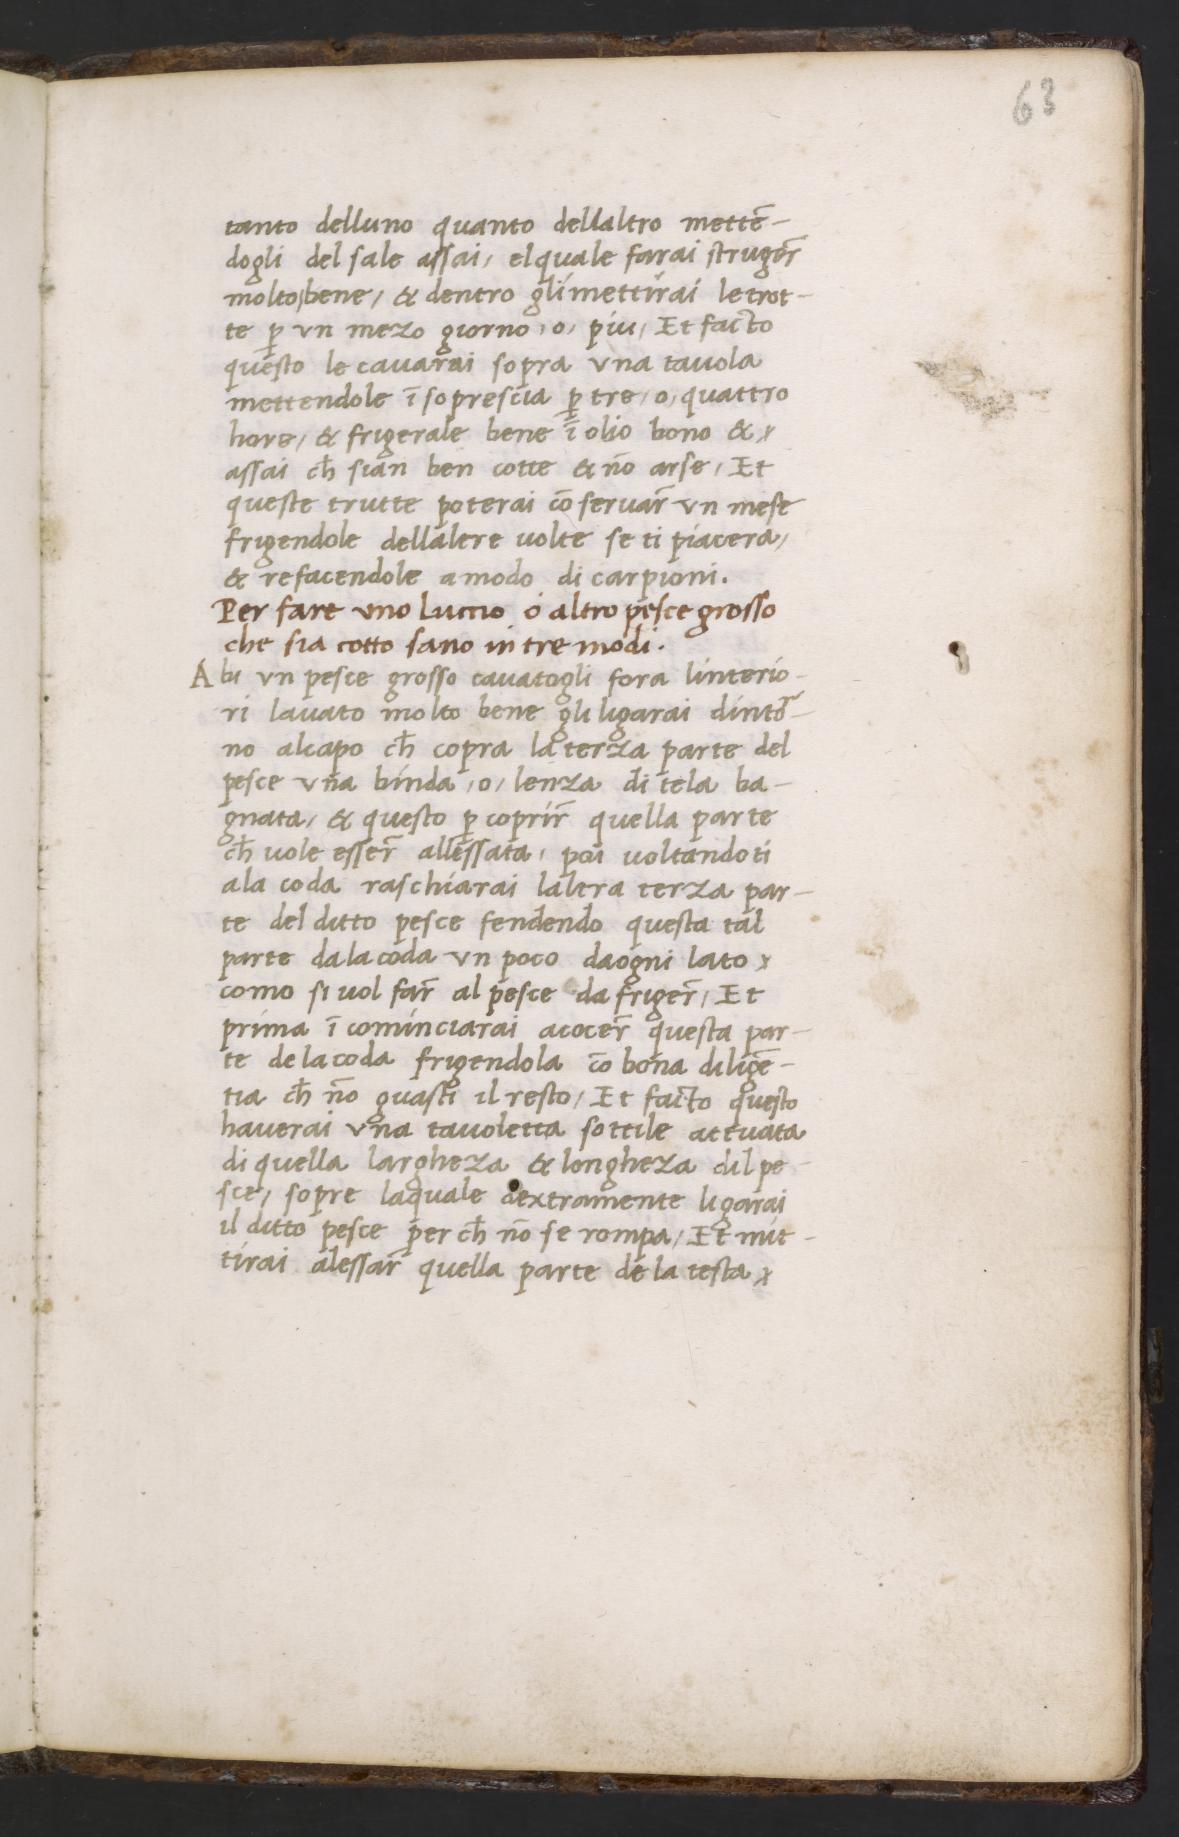 63
tanto delluno quanto dellaltro mettē-
dogli del sale assai, elquale farai struger̄
molto bene, & dentro gli mettirai le trot-
te ꝑ vn mezo giorno, o, piu, Et facto
questo le cavarai sopra vna tavola
mettendole ī soprescia ꝑ tre, o, quattro
hore, & frigerale bene ī olio bono &
assai ch̄ sian ben cotte & nō arse, Et
queste trutte poterai cōservar̄ vn mese
frigendole dellaltre volte se ti piacera,
& refacendole a modo di carpioni.
Per fare vno Luccio o altro pesce grosso
che sia cotto sano in tre modi.
Abi vn pesce grosso cavatogli fora linterio-
ri lavato molto bene gli ligarai dintor̄-
no al capo ch̄ copra la terza parte del
pesce vna binda, o, lenza di tela ba-
gnata, & questo ꝑ coprir̄ quella parte
ch̄ vole esser̄ allessata, poi voltandoti
a la coda raschiarai laltra terza par-
te del ditto pesce fendendo questa tal
parte da la coda vn poco da ogni lato
como si vol far̄ al pesce da friger̄, Et
prima ī cominciarai a cocer̄ questa par-
te de la coda frigendola cō bona diligē-
tia ch̄ nō guasti il resto, Et facto questo
haverai vna tavoletta sottile attuata
di quella largheza & longheza dil pe-
sce, sopre laquale dextramente ligarai
il ditto pesce perch̄ nō se rompa, Et mit-
tirai alessar̄ quella parte de la testa